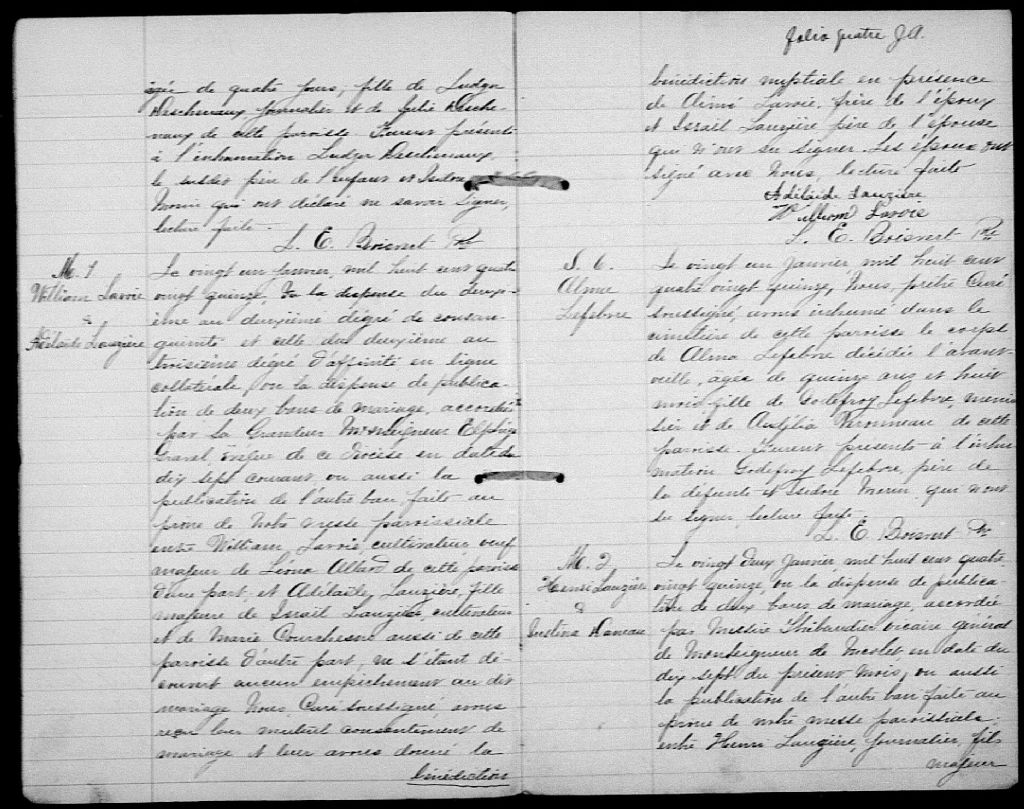 âgée de quatre jours, fille de Ludger
Descheneaux journalier et de Julie Desche-
neaux de cette paroisse. Furent présents
à l'inhumation Ludger Descheneaux
le susdit père de l'enfant et Isidore
Morin qui ont déclaré ne savoir signer,
lecture faite.
L. E. Boisvert Ptre
M. 1
William Lavoie
&
Adélaide Lauzière
Le vingt un janvier, mil huit cent quatre
vingt quinze, Vu la dispense du deuxi-
ième au deuxième dégré de consan-
guinité et celle du deuxième au
troisième dégré d'affinité en ligne
collatérale, vu la dispense de publica-
tion de deux bans de mariage, accordée
par Sa Grandeur Monseigneur Elphège
Gravel, évêque de ce diocèse en date du
dix sept courant, vu aussi la
publication de l'autre ban faite au
prone de notre messe paroissiale
entre William Lavoie, cultivateur, veuf
majeur de Léona Allard de cette paroisse
d'une part, et Adélaide Lauzière, fille
majeure de Israil Lauzière, cultivateur
et de Marie Courchesne aussi de cette
paroisse d'autre part, ne s'étant dé-
couvert aucun empêchement au dit
mariage Nous, Curé soussigné avons
reçu leur mutuel consentement de
mariage et leur avons donné la
bénédiction
folio quatre J.A.
bénédiction nuptiale en présence
de Aimé Lavoie, frère de l'époux
et Israil Lauzière père de l'épouse
qui n'ont su signer. Les époux ont
signé avec Nous, lecture faite
Adélaide Lauzière
William Lavoie
L. E. Boisvert Ptre
S. 6.
Alma
Lefebvre
Le vingt un Janvier, mil huit cent
quatre vingt quinze, Nous, prêtre Curé
soussigné, avons inhumé dans le
cimetière de cette paroisse le corps
de Alma Lefebvre décédée l'avant-
veille, agée de quinze ans et huit
mois fille de Godefroy Lefebvre, menui
sier et de Audélia Veronneau de cette
paroisse. Furent presents à l'inhu
mation Godefroy Lefebvre, père de
la défunte et Isidore Morin, qui n'ont
su signer, lecture faite.
L. E. Boisvert Ptre
M. 2
Henri Lauzière
&
Justina Daneau
Le vingt deux Janvier mil huit cent quatre
vingt quinze, vu la dispense de publica-
tion de deux bans de mariage, accordée
par Messire Thibaudier vicaire général
de Monseigneur de Nicolet en date du
dix sept du présent mois, vu aussi
la publication de l'autre ban faite au
prone de notre messe paroissiale,
entre Henri Lauzière, journalier, fils
majeur